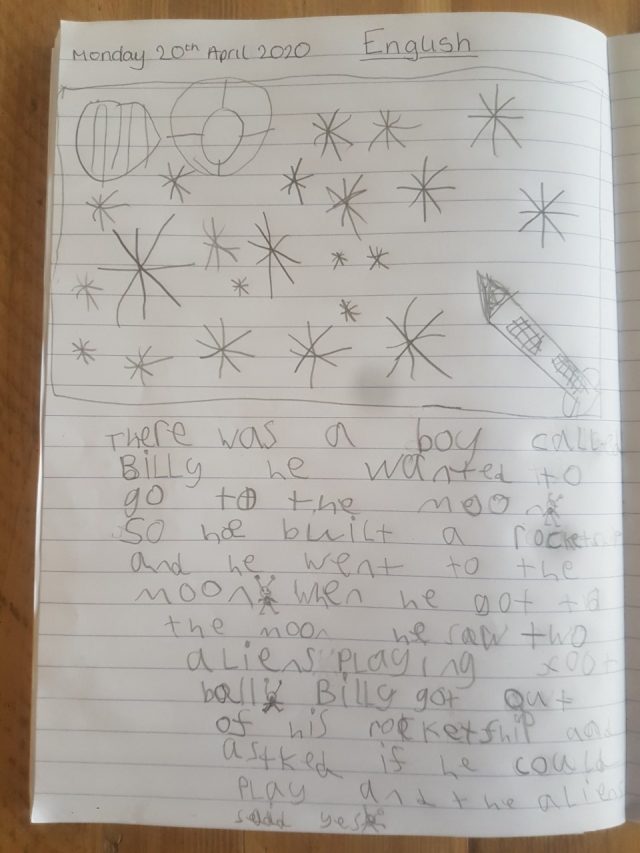 Monday 20th April 2020 English
There was a boy called
Billy he wanted to
go to the moon
So he built a rocketship
and he went to the
moon when he got to
the moon he saw two
aliens playing foot
ball Billy got out
of his rocketship and
astked if he could
play and the aliens
said yes